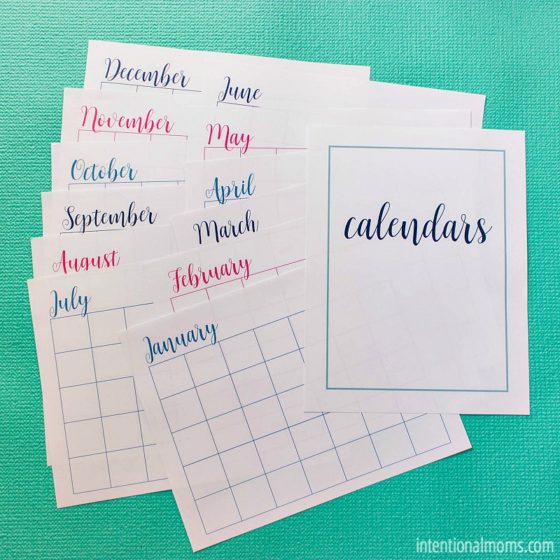 December
June
November
May
October
April
September
March
August
February
July
January
calendars
intentionalmoms.com